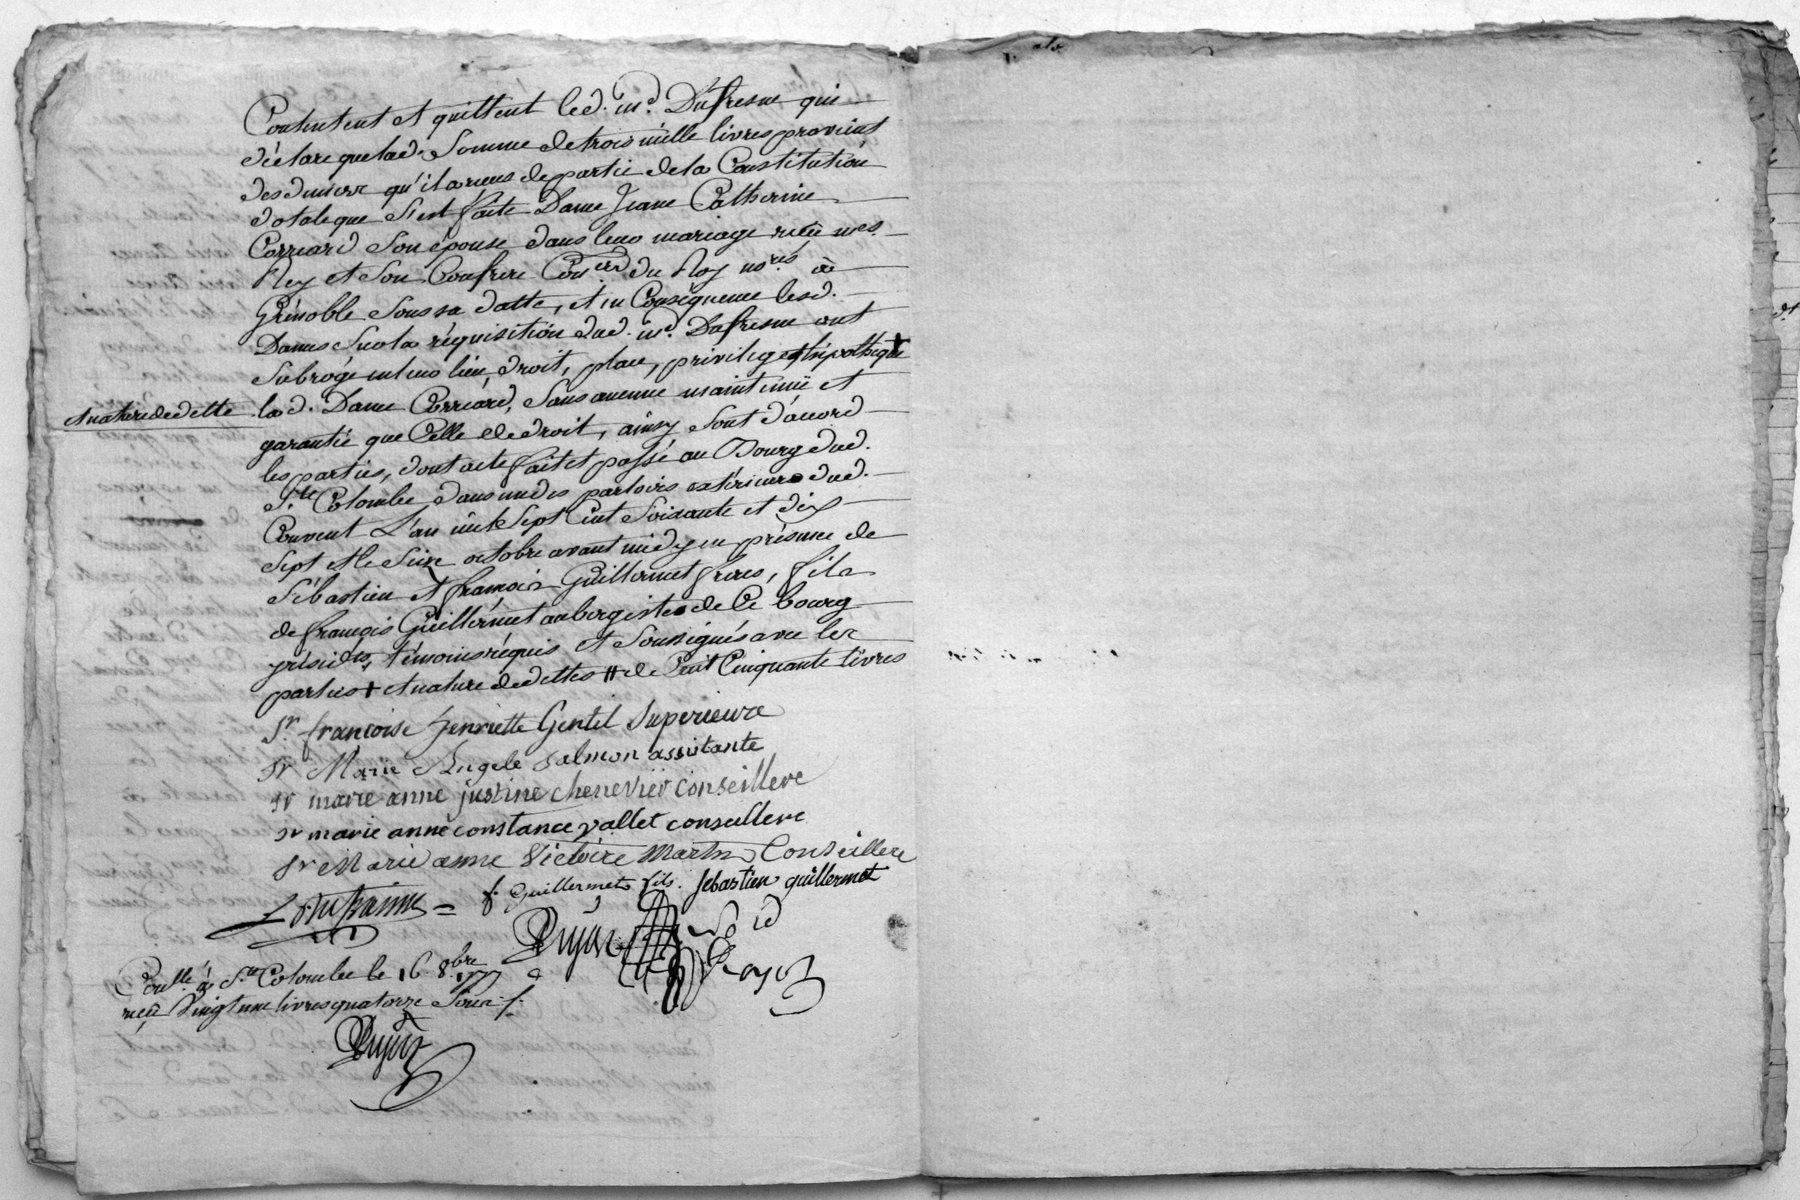 Contentent et quittent led. me. Dufresne qui
déclare que lad. Somme de trois mille livres provient
des deniers qu'il a reçus de partie de la Constitution
dotale que S'est faite Dame Jeane Catherine
Corréard Son épouse dans leur mariage reçu mes.
Rey et Son Confrere Coners du Roy nores à
Grénoble Sous sa datte, et en Conséquence lesd.
Dames Sur la réquisition dud. me. Dufresne ont
Subrogé en leur lieu, droit, place, privilege et hipothèque +
et nature de dette
lad. Dame Corréard, Sans aucune maintenüe et
garantie que Celle de droit, ainsy Sont d'accord
les parties, dont acte fait et passé au Bourg dud.
Ste Colombe dans un des parloirs extérieurs dud.
Couvent L'an mil Sept Cent Soixante et dix
Sept et le Seize octobre avant midy en présence de
Sébastien et françois Guillermet freres, fils
de françois Guillermet aubergiste de Ce bourg
présidts témoins réquis et Soussignés avec les
parties + et nature de dettes # de Cent Cinquante livres
Sr. francoise henriette Gentil Superieure
Sr Marie Angele Salmon assistante
Sr marie anne justine chenevier conseillere
Sr marie anne constance vallet conseillere
Sr Marie anne Victoire Martin Conseillere
f. Guillermet fils. Sebastien guillermet
Conllé à Ste Colombe le 16 8bre 1777
reçu Vingt une livres quatorze Sous f.